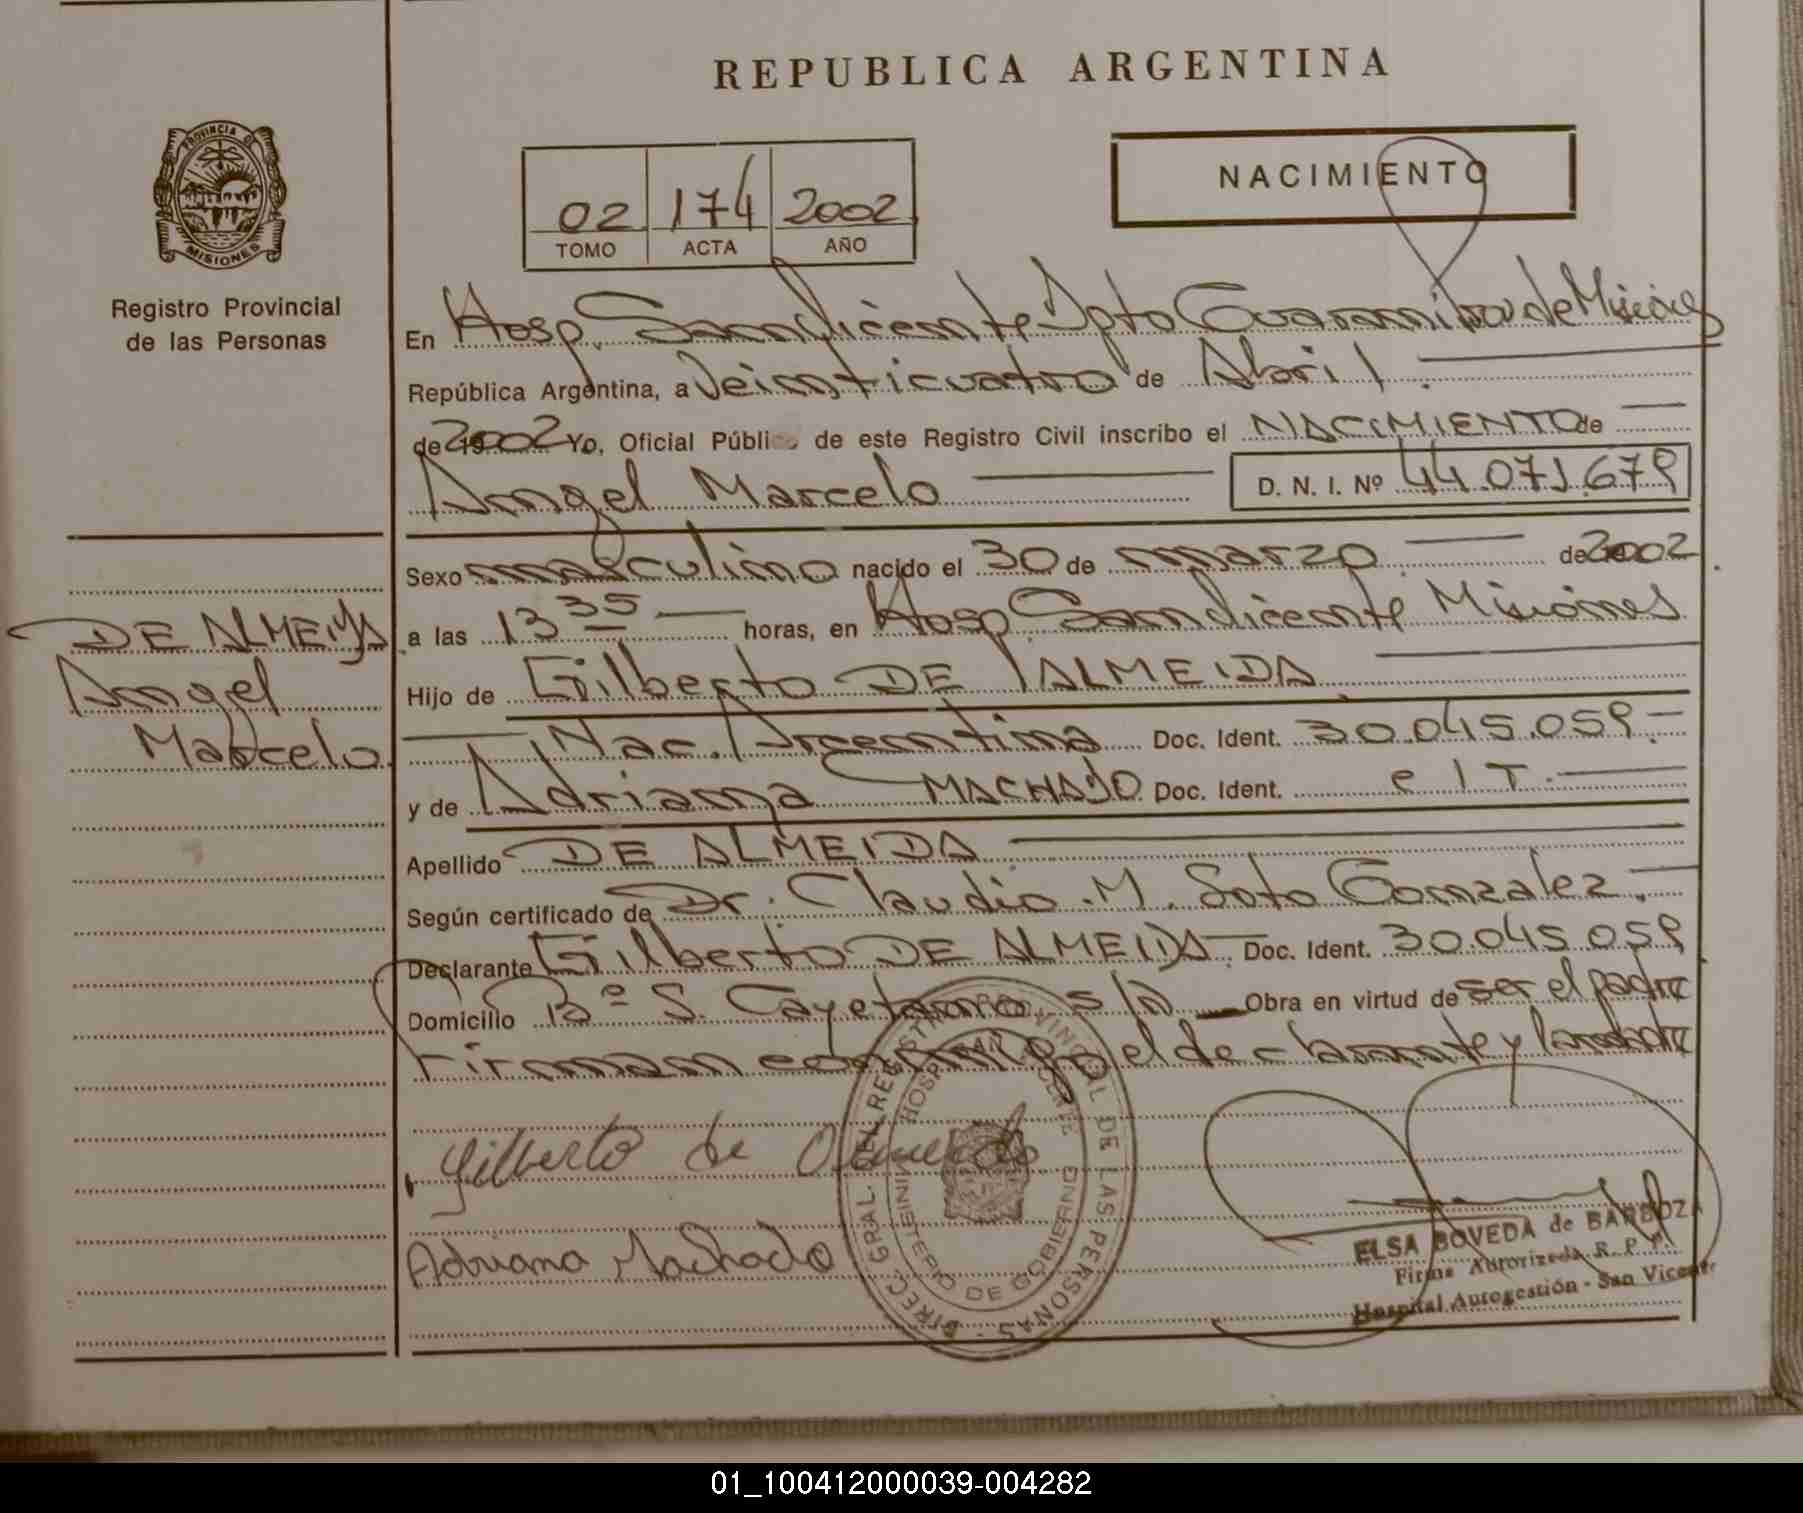 REPUBLICA ARGENTINA
PROVINCIA DE
MISIONES
Registro Provincial
de las Personas
02 174 2002
TOMO ACTA AÑO
NACIMIENTO
En Hosp. San Vicente Dpto Guarani Prov de Misiones
República Argentina, a Veinticuatro de Abril
de 2002 Yo, Oficial Público de este Registro Civil inscribo el NACIMIENTO de
Angel Marcelo D. N. I. Nº 44.071.679
Sexo masculino nacido el 30 de marzo de 2002
a las 13 35 horas, en Hosp San Vicente Misiones
Hijo de Gilberto DE ALMEIDA
Nac. Argentina Doc. Ident. 30.045.059.-
y de Adriana MACHADO Doc. Ident. e/T.
Apellido DE ALMEIDA
Según certificado de Dr. Claudio M. Soto Gonzalez.
Declarante Gilberto DE ALMEIDA. Doc. Ident. 30.045.059
Domicilio Bº S. Cayetano s/n Obra en virtud de ser el padre
Firman conmigo el declarante y la madre
DE ALMEIDA
Angel
Marcelo
Gilberto de Almeida
Adriana Machado
DIREC. GRAL. DEL REGISTRO PROVINCIAL DE LAS PERSONAS
HOSP. SAN VICENTE
MINISTERIO DE GOBIERNO
ELSA BOVEDA de BARBOZA
Firma Autorizada R. P. P.
Hospital Autogestión - San Vicente
01_100412000039-004282